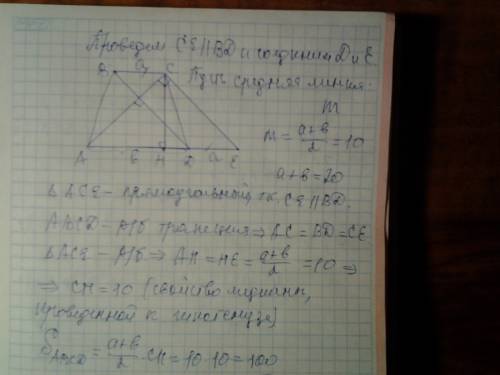 Проведем CE || BD и соединим D и E
Пусть средняя линия-
m
B a C
A b H D a E
m = a+b/2 = 10
a+b = 20
Δ ACE - прямоугольный, т.к. CE || BD.
ABCD - р/б трапеция ⇒ AC = BD = CE
Δ ACE - р/б ⇒ AH = HE = a+b/2 = 10 ⇒
⇒ CH = 10 (свойство медианы,
проведенной к гипотенузе)
S ABCD = a+b/2 · CH = 10·10 = 100